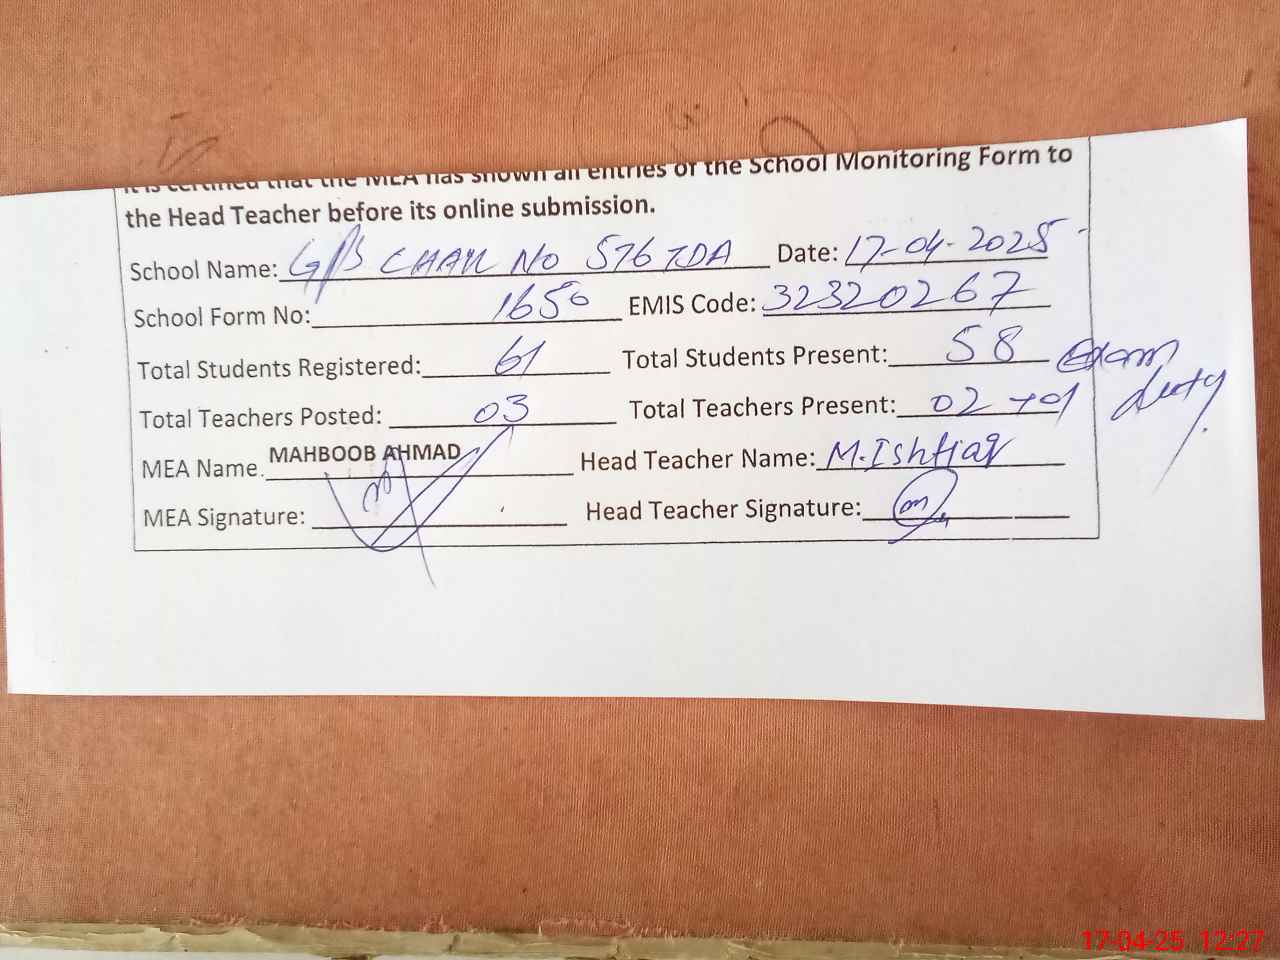 It is certified that the MEA has shown all entries of the School Monitoring Form to
the Head Teacher before its online submission.
School Name: G/P/S CHAK No 576 TDA Date: 17-04-2025
School Form No: 1650 EMIS Code: 32320267
Total Students Registered: 61 Total Students Present: 58 Exam
Total Teachers Posted: 03 Total Teachers Present: 02 +01 duty.
MEA Name. MAHBOOB AHMAD Head Teacher Name: M.Ishtiaq
MEA Signature: Head Teacher Signature:
17-04-25 12:27